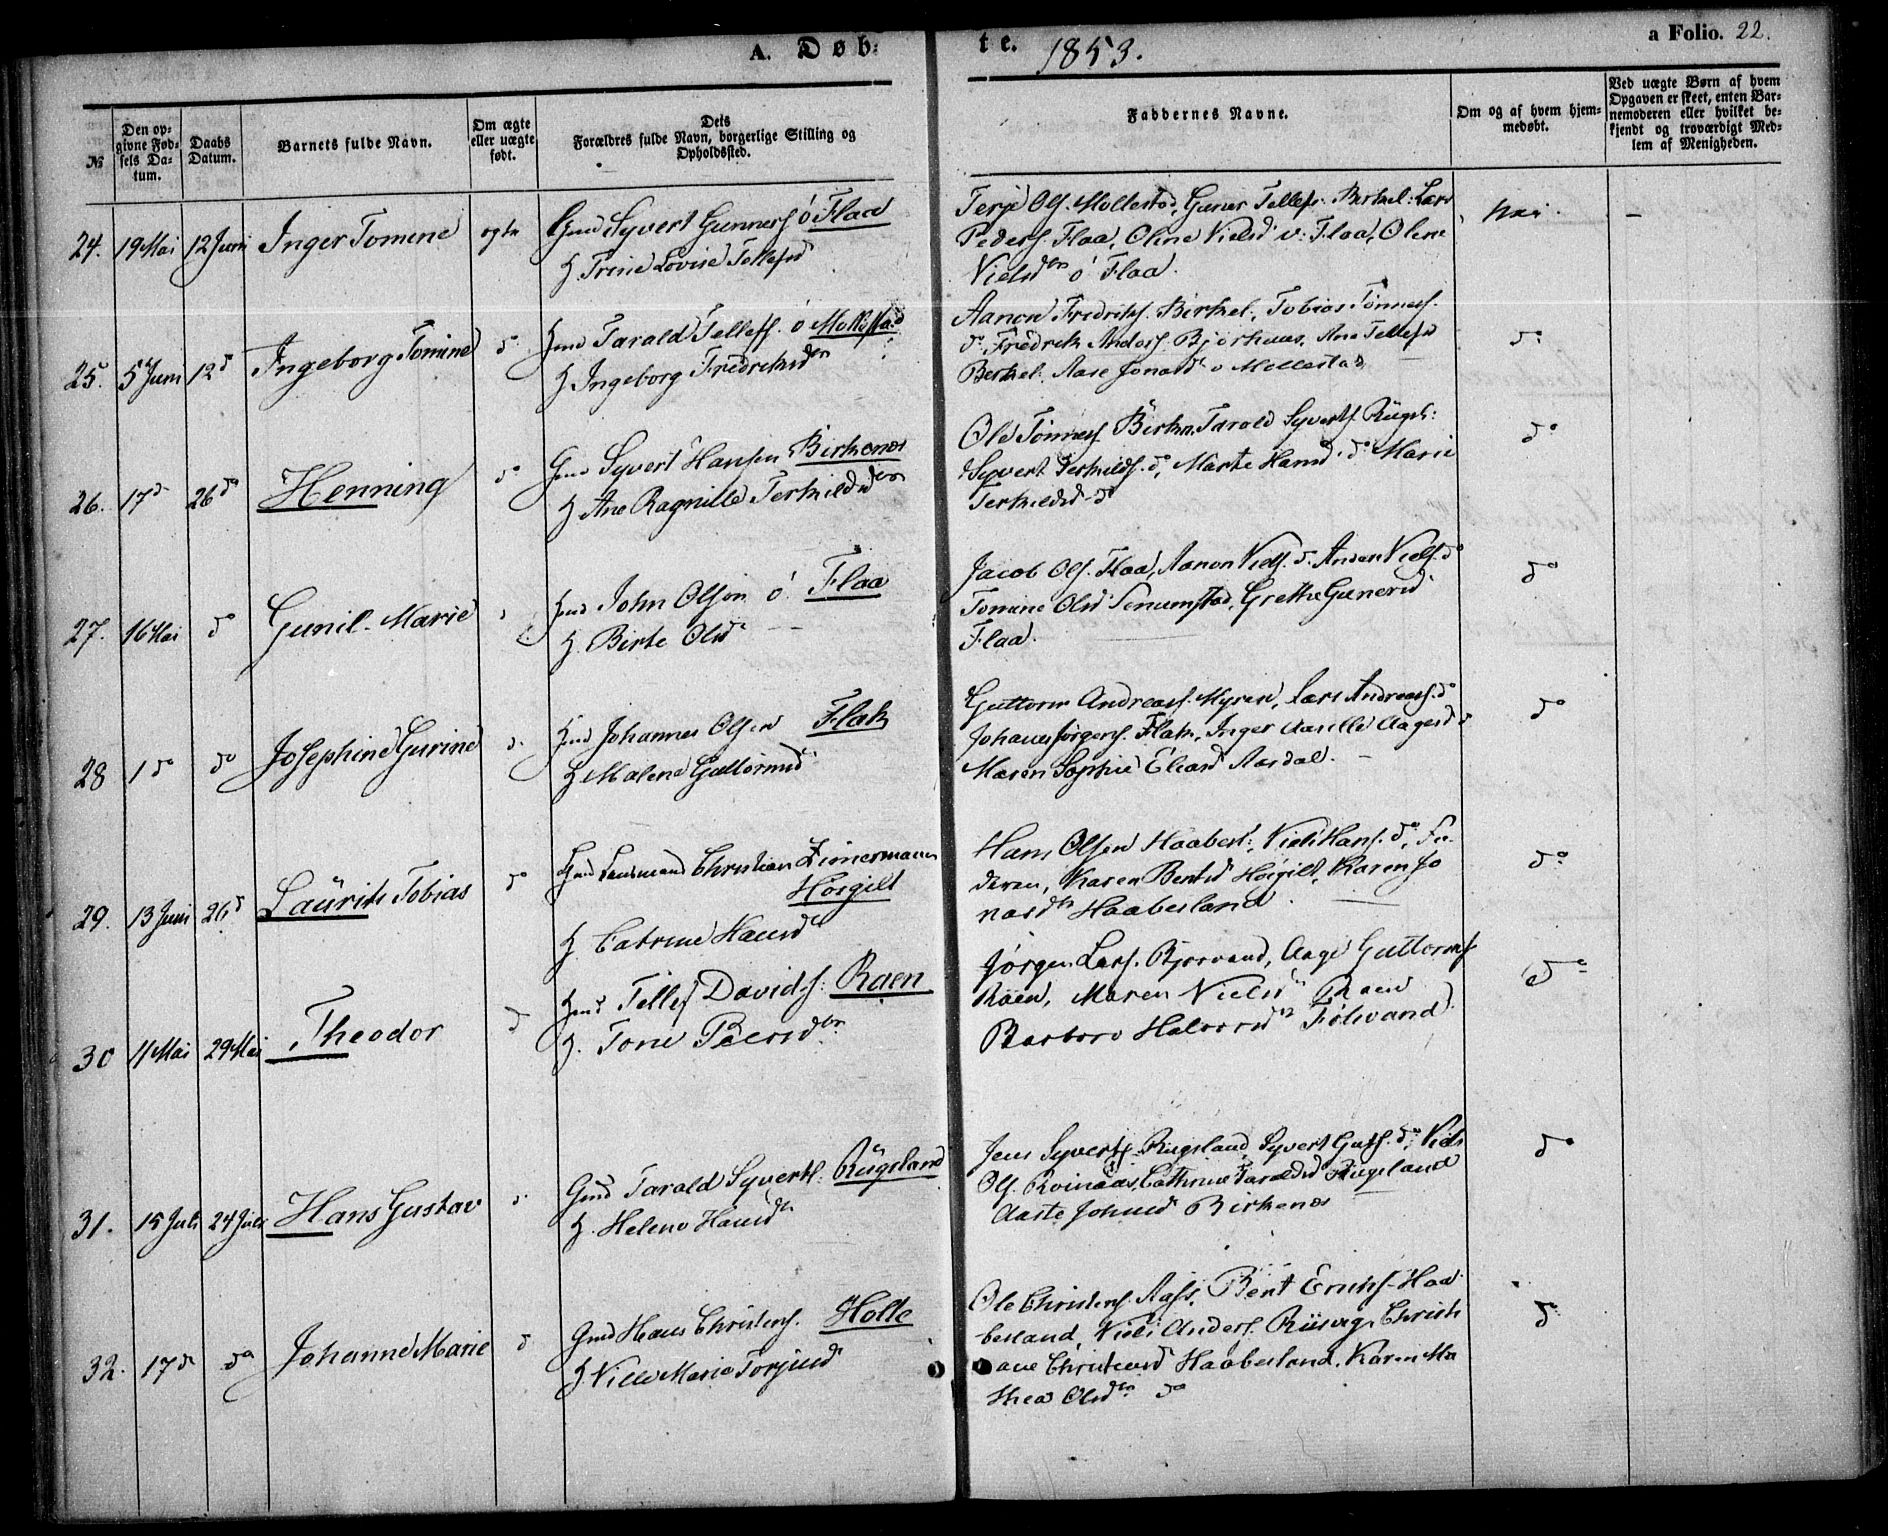 A. Døb: te. 1853. a Folio. 22.
№ Den opgivne Fødsels Datum. Daabs Datum. Barnets fulde Navn. Om ægte eller uægte født. Dets Forældres fulde Navn, borgerlige Stilling og Opholdssted. Faddernes Navne. Om og af hvem hjemmedøbt. Ved uægte Børn af hvem Opgaven er skeet, enten Barnemoderen eller hvilket bekjendt og troværdigt Medlem af Menigheden.
24. 19 Mai 12 Juni Inger Tomine ægte Gmd Syvert Gunners ó Flaa
H Trine Lovise Tellefsd
Terje Ols. Mollestad, Guner Tellefs. Berkel: Lars
Peders Flaa, Oline Nielsd v: Flaa, Olene
Nielsdtr ó Flaa.
Nei. –
25. 5 Juni 12 d Ingeborg Tomine do Gmd Tarald Tellefs. ó Mollestad
H Ingeborg Fredriksdtr
Aanon Fredriks. Birkel, Tobias Tønnes.
do Fredrik Anders. Bjorhaas, Ane Tellefsd
Berkel. Aase Jonasd o Mollestad
do
26. 17 d 26 do Henning do Gmd Syvert Hansen Birkenæs
H Ane Ragnille Terkildsdtr
Ole Tønnes. Birkn. Tarald Syverts. Rügsl:
Syvert Terkilds. do, Marte Hansd. do Marie
Terkildsd do
do
27. 16 Mai do Gunil Marie Gmd John Olsen ó Flaa
H. Birte Olsd
Jacob Ols. Flaa, Aanon Niels. d. Anders Niels. do
Tomine Olsd Senumstad, Grethe Gunersd
Flaa.
do
28 1 do do Josephine Gurine d. Gmd Johannes Olsen Flak
H Malene Guttormsd
Guttorm Andreas. Myren, Lars Andreas. do
Johannes Jørgens. Flak, Inger Aasille Aagesd
Maren Sophie Eliasd Aasdal. –
do
29. 13 Juni 26 d Laurits Tobias do Gmd Lensmand Christian Zimermann
Høigilt
H Catrine Hansd
Hans Olsen Haabesl:, Niels Hans. do, Fa-
deren, Karen Bentsd Høigilt, Karen Jo
nasdtr Haabesland.
do
30 11 Mai 29 Mai Theodor d Gmd Tellef Davids: Raen
H. Tone Peersdtr.
Jørgen Lars. Bjorvand, Aage Guttorms
Raen, Maren Nielsd Raen
Barbro Halvorsd Følvand.
do
31. 15 Juli 24 Juli Hans Gustav Gmd Tarald Syverts. Rügsland
H. Helene Hansdtr
Jens Syverts. Rugsland, Syvert do, Niels
Ols. Roinaas, Cathrine Taraldsd Rugsland
Aaste Johnsd Birkenæs
do
32. 17 d do Johanne Marie d Gmd Hans Christens. Holte
H Nille Marie Torjusd
Ole Christens. Aas, Bent Eriks. Haa-
besland, Niels Anders. Risvig, Christi
ane Christensd Haabesland, Karen Ma
thea Olsdtr do
do